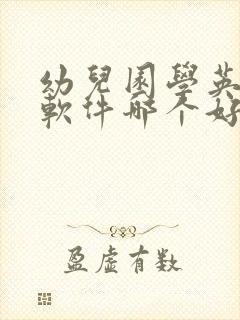 幼兒園學英
軟件哪个好
盈虛有数